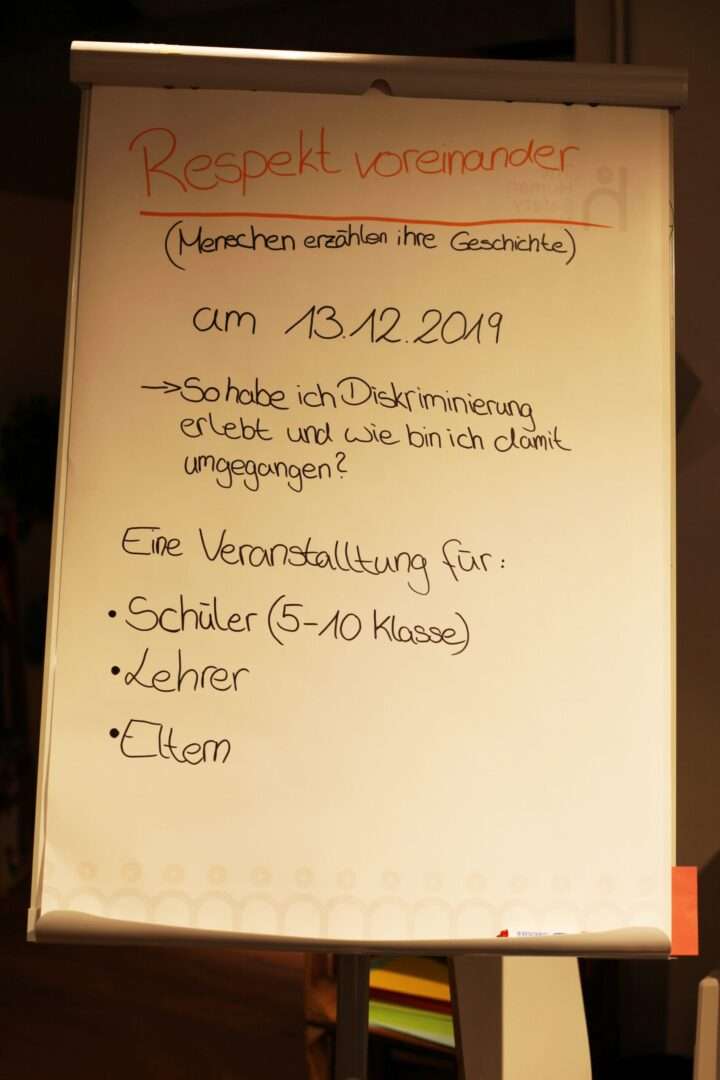 Respekt voreinander
(Menschen erzählen ihre Geschichte)
am 13.12.2019
→ So habe ich Diskriminierung
erlebt und wie bin ich damit
umgegangen?
Eine Veranstalltung für:
• Schüler (5-10 Klasse)
• Lehrer
• Eltern